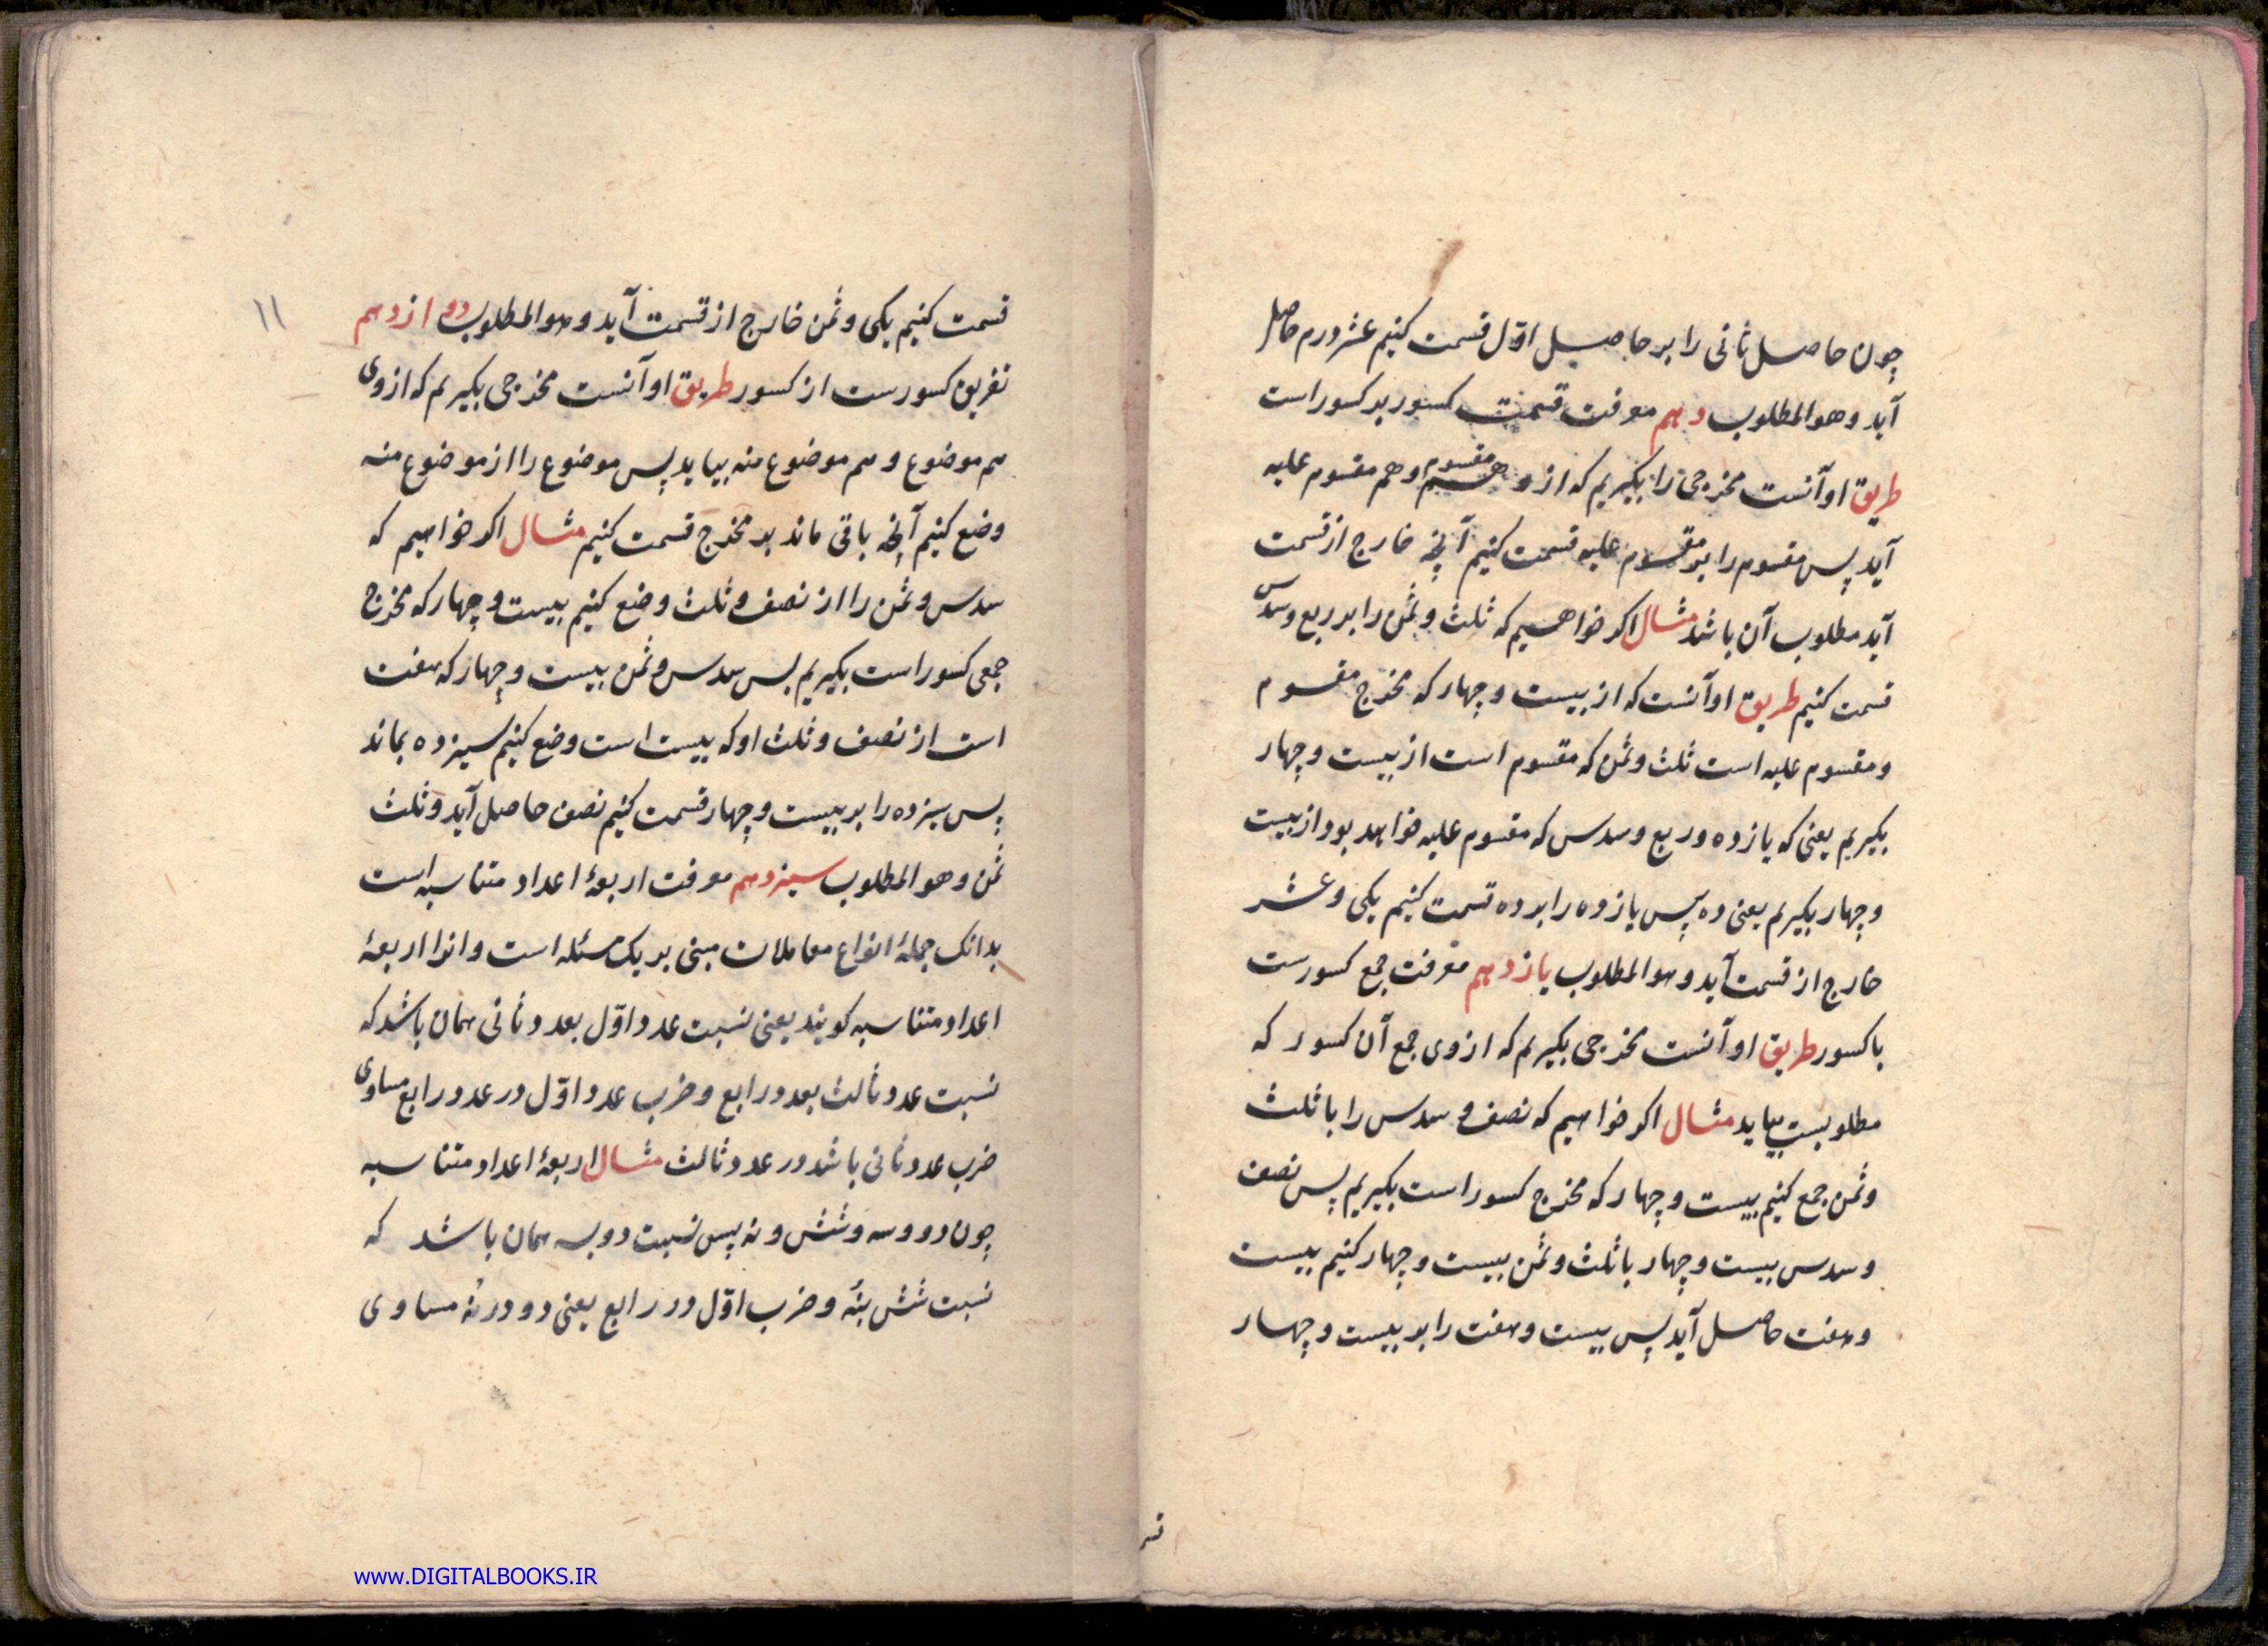 چون حاصل ثانی را بر حاصل اوّل قسمت کنیم عشر درم حاصل
آید و هو المطلوب دهم معرفت قسمت کسور بر کسور است
طریق او آنست مخرجی را بکیریم که ازو هم مقسوم و هم مقسوم علیه
آید پس مقسوم را بر مقسوم علیه قسمت کنیم آنچه خارج از قسمت
آید مطلوب آن باشد مثال اکر خواهیم که ثلث و ثمن را بر ربع و سدس
قسمت کنیم طریق او آنست که از بیست و چهار که مخرج مقسوم
و مقسوم علیه است ثلث و ثمن که مقسوم است از بیست و چهار
بکیریم یعنی که یازده و ربع و سدس که مقسوم علیه خواهد بود از بیست
و چهار بکیریم یعنی ده پس یازده را بر ده قسمت کنیم یکی و عشر
خارج از قسمت آید و هو المطلوب یازدهم معرفت جمع کسورست
با کسور طریق او آنست مخرجی بکیریم که از وی جمع آن کسور که
مطلوبست بیاید مثال اکر خواهیم که نصف و سدس را با ثلث
و ثمن جمع کنیم بیست و چهار که مخرج کسور است بکیریم پس نصف
و سدس بیست و چهار با ثلث و ثمن بیست و چهار کنیم بیست
و هفت حاصل آید پس بیست و هفت را بر بیست و چهار
۱۱
قسمت کنیم یکی و ثمن خارج از قسمت آید و هو المطلوب دوازدهم
تفریق کسورست از کسور طریق او آنست مخرجی بکیریم که از وی
هم موضوع و هم موضوع منه بیاید پس موضوع را از موضوع منه
وضع کنیم آنچه باقی ماند بر مخرج قسمت کنیم مثال اکر خواهیم که
سدس و ثمن را از نصف و ثلث وضع کنیم بیست و چهار که مخرج
جمعی کسور است بکیریم پس سدس و ثمن بیست و چهار که هفت
است از نصف و ثلث او که بیست است وضع کنیم سیزده بماند
پس سیزده را بر بیست و چهار قسمت کنیم نصف حاصل آید و ثلث
ثمن و هو المطلوب سیزدهم معرفت اربعهٔ اعداد متناسبه است
بدانک جملهٔ انواع معاملات مبنی بر یک مسئله است و انرا اربعهٔ
اعداد متناسبه کویند یعنی نسبت عدد اوّل بعدد ثانی همان باشد که
نسبت عدد ثالث بعدد رابع و ضرب عدد اوّل در عدد رابع مساوی
ضرب عدد ثانی باشد در عدد ثالث مثال اربعهٔ اعداد متناسبه
چون دو و سه و شش و نه پس نسبت دو بسه همان باشد که
نسبت شش بنه و ضرب اوّل در رابع یعنی دو در نه مساوی
www.DIGITALBOOKS.IR